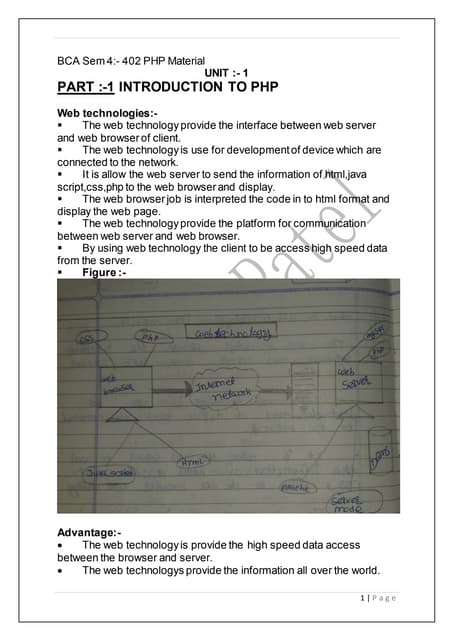 BCA Sem 4:- 402 PHP Material
UNIT :- 1
PART :-1 INTRODUCTION TO PHP
Web technologies:-
▪ The web technology provide the interface between web server
and web browser of client.
▪ The web technology is use for development of device which are
connected to the network.
▪ It is allow the web server to send the information of,html,java
script,css,php to the web browser and display.
▪ The web browser job is interpreted the code in to html format and
display the web page.
▪ The web technology provide the platform for communication
between web server and web browser.
▪ By using web technology the client to be access high speed data
from the server.
▪ Figure :-
Patel
web technology
CSS
PHP
mySQL
PHP
web
browser
Internet
network
web
Server
Java script
HTML
Apache
DBMS
Server
mode
Advantage:-
• The web technology is provide the high speed data access
between the browser and server.
• The web technologys provide the information all over the world.
1 | Page